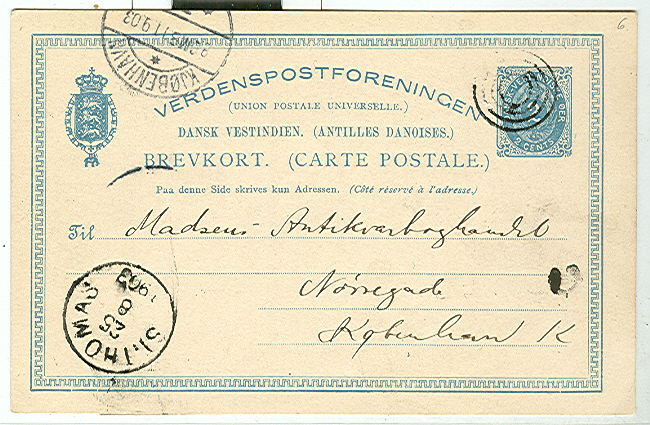 6
KJØBENHAVN 11.9.03
VERDENSPOSTFORENINGEN
(UNION POSTALE UNIVERSELLE.)
DANSK VESTINDIEN. (ANTILLES DANOISES.)
BREVKORT. (CARTE POSTALE.)
CENTS
Paa denne Side skrives kun Adressen. (Côté réservé à l'adresse.)
Til Madsens Antikvarboghandel
Nørregade
København K
ST. THOMAS 25 8 1903